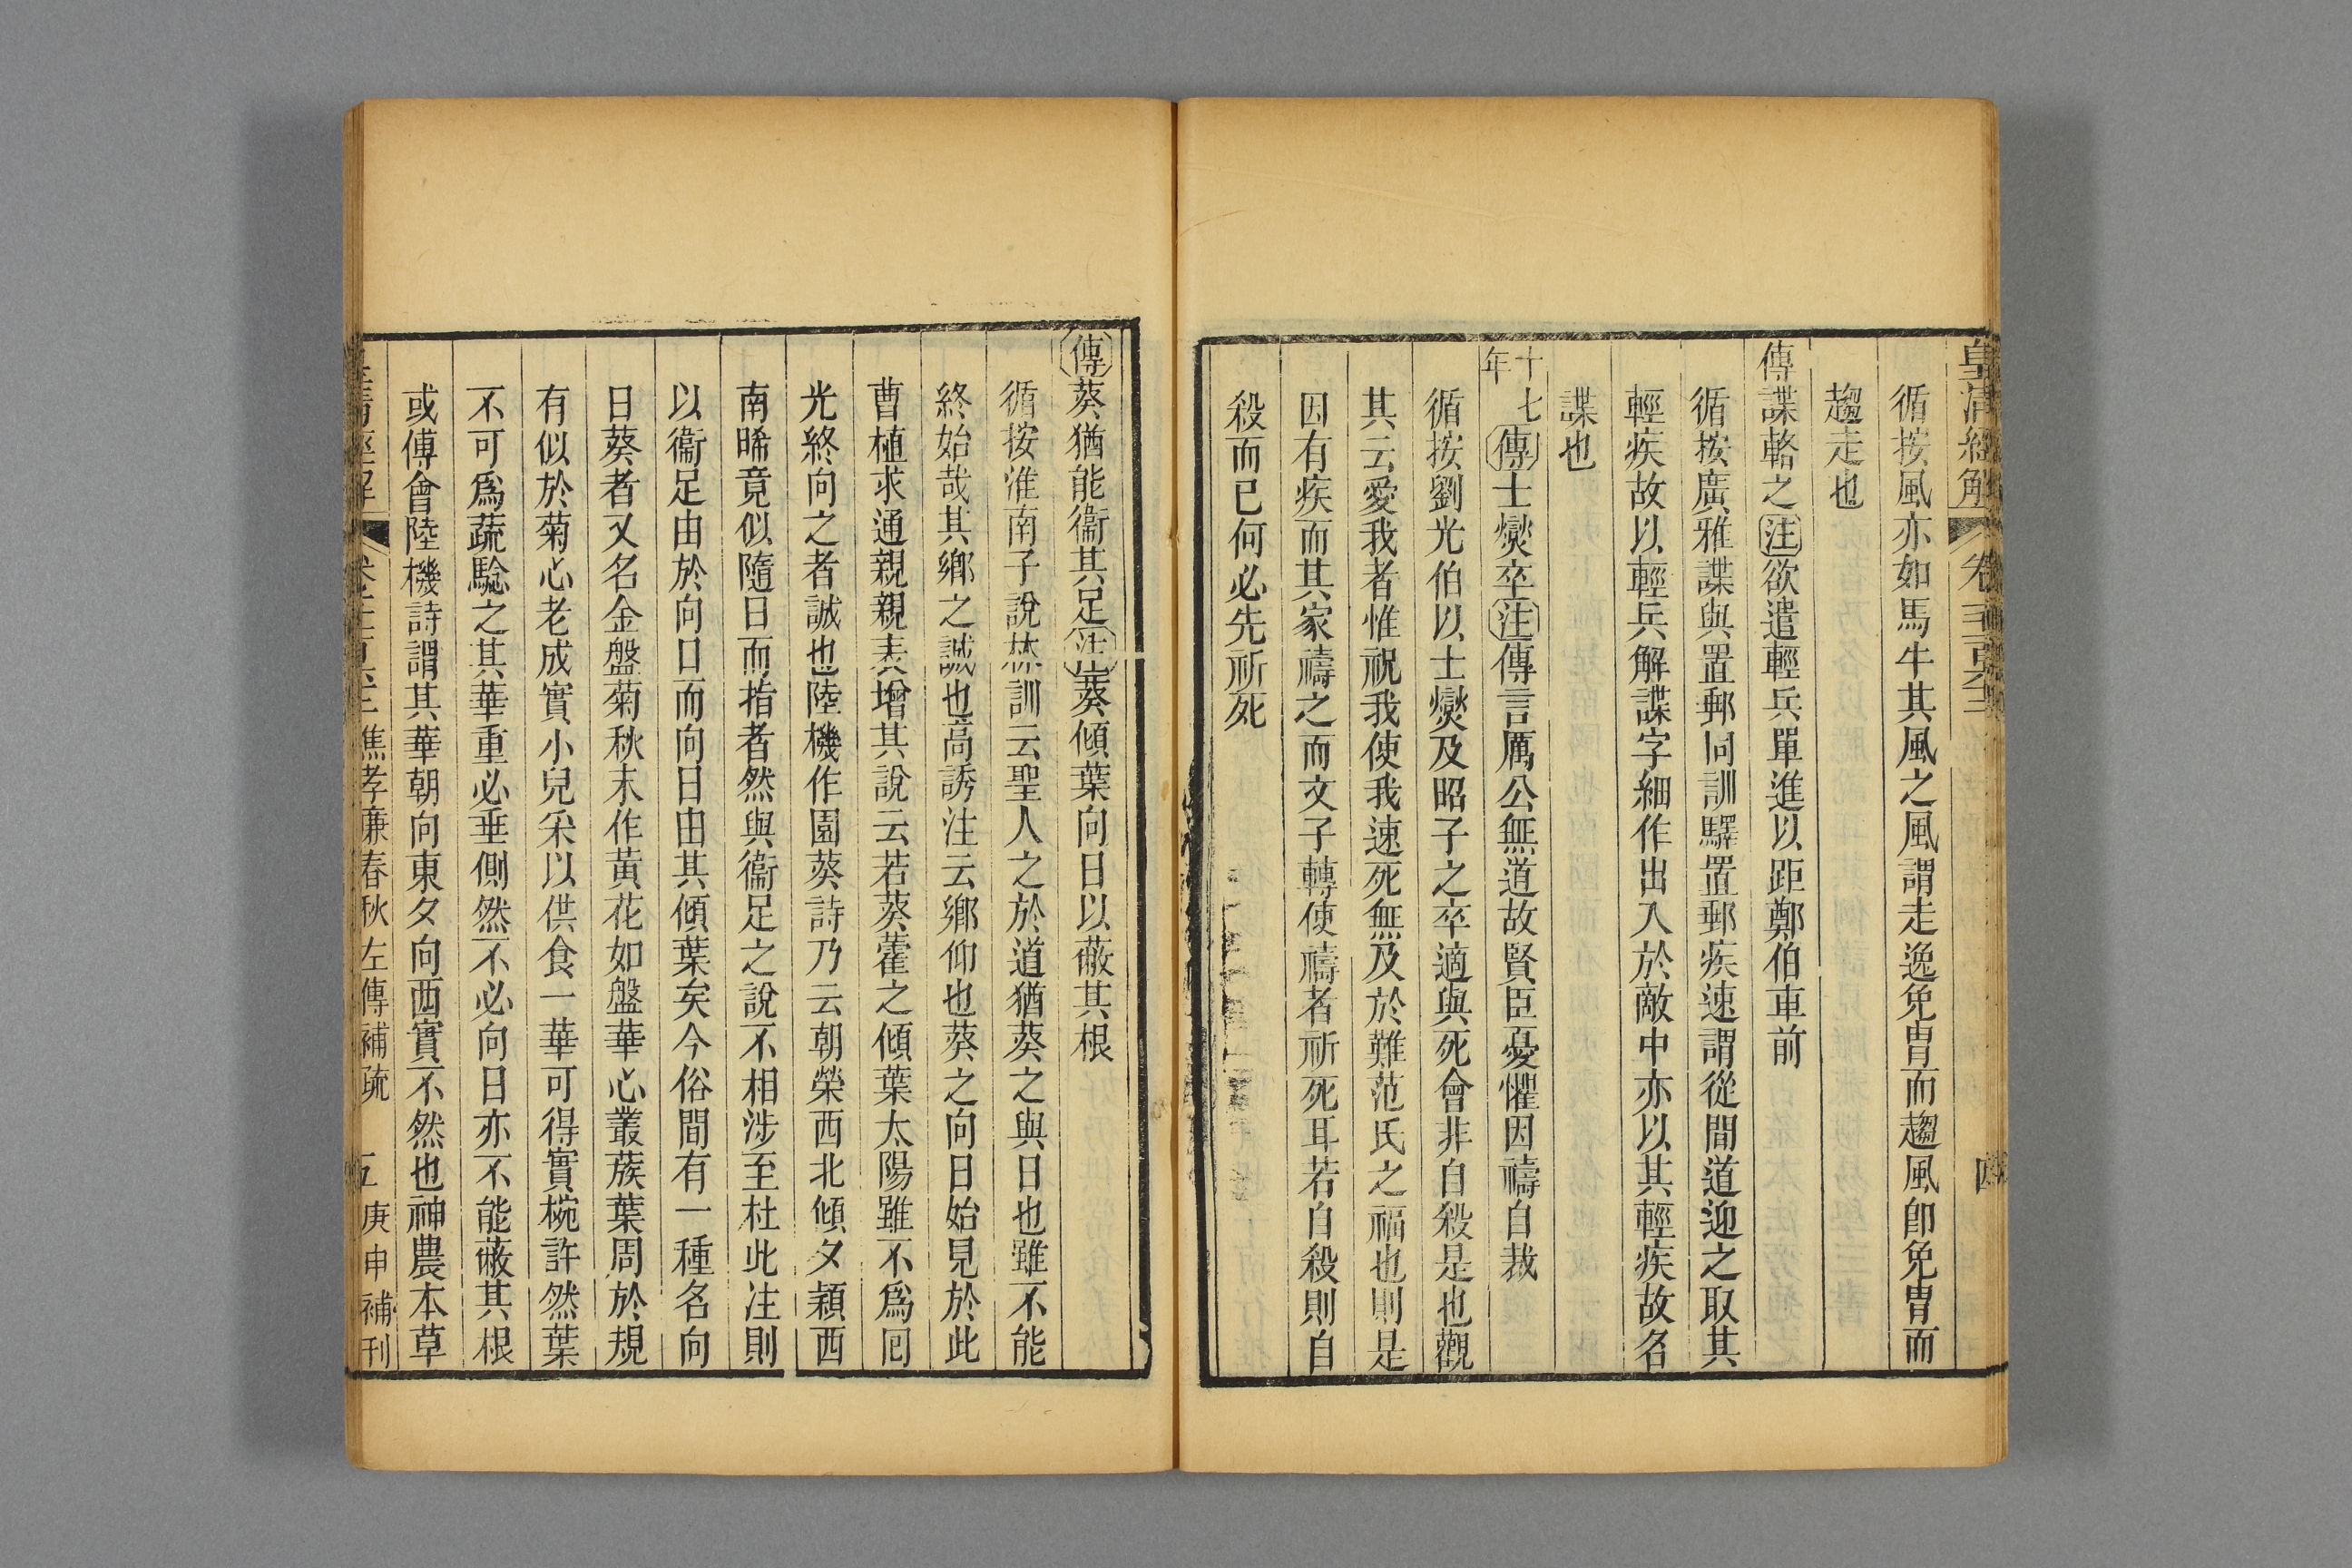 皇清經解 卷
循按風亦如馬牛其風之風謂走逸免胄而趨風卽免胄而
趨走也
傳諜輅之注欲遣輕兵單進以距鄭伯車前
循按廣雅諜與置郵同訓驛置郵疾速謂從間道迎之取其
輕疾故以輕兵解諜字細作出入於敵中亦以其輕疾故名
諜也
十七年傳士燮卒注傳言厲公無道故賢臣憂懼因禱自裁
循按劉光伯以士燮及昭子之卒適與死會非自殺是也觀
其云愛我者惟祝我使我速死無及於難范氏之福也則是
因有疾而其家禱之而文子轉使禱者祈死耳若自殺則自
殺而已何必先祈死
傳葵猶能衞其足注葵傾葉向日以蔽其根
循按淮南子說林訓云聖人之於道猶葵之與日也雖不能
終始哉其鄉之誠也高誘注云鄉仰也葵之向日始見於此
曹植求通親親表增其說云若葵藿之傾葉太陽雖不爲囘
光終向之者誠也陸機作園葵詩乃云朝榮西北傾夕穎西
南晞竟似隨日而指者然與衞足之說不相涉至杜此注則
以衞足由於向日而向日由其傾葉矣今俗間有一種名向
日葵者又名金盤菊秋末作黃花如盤華心叢蔟葉周於規
有似於菊心老成實小兒采以供食一華可得實椀許然葉
不可爲蔬驗之其華重必垂側然不必向日亦不能蔽其根
或傅會陸機詩謂其華朝向東夕向西實不然也神農本草
皇清經解 焦孝廉春秋左傳補疏 五 庚申補刊